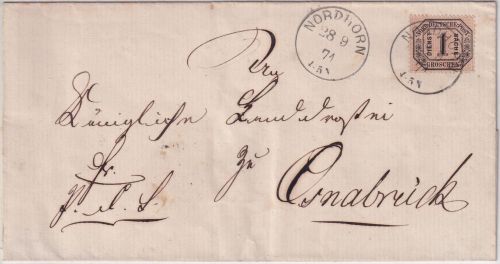 NORDHORN
28 9
71
4-5N
NORDDEUTSCHE POST
DIENST SACHE
1
GROSCHEN
N
4-5N
Königliche Landdrostei
zu
Osnabrück